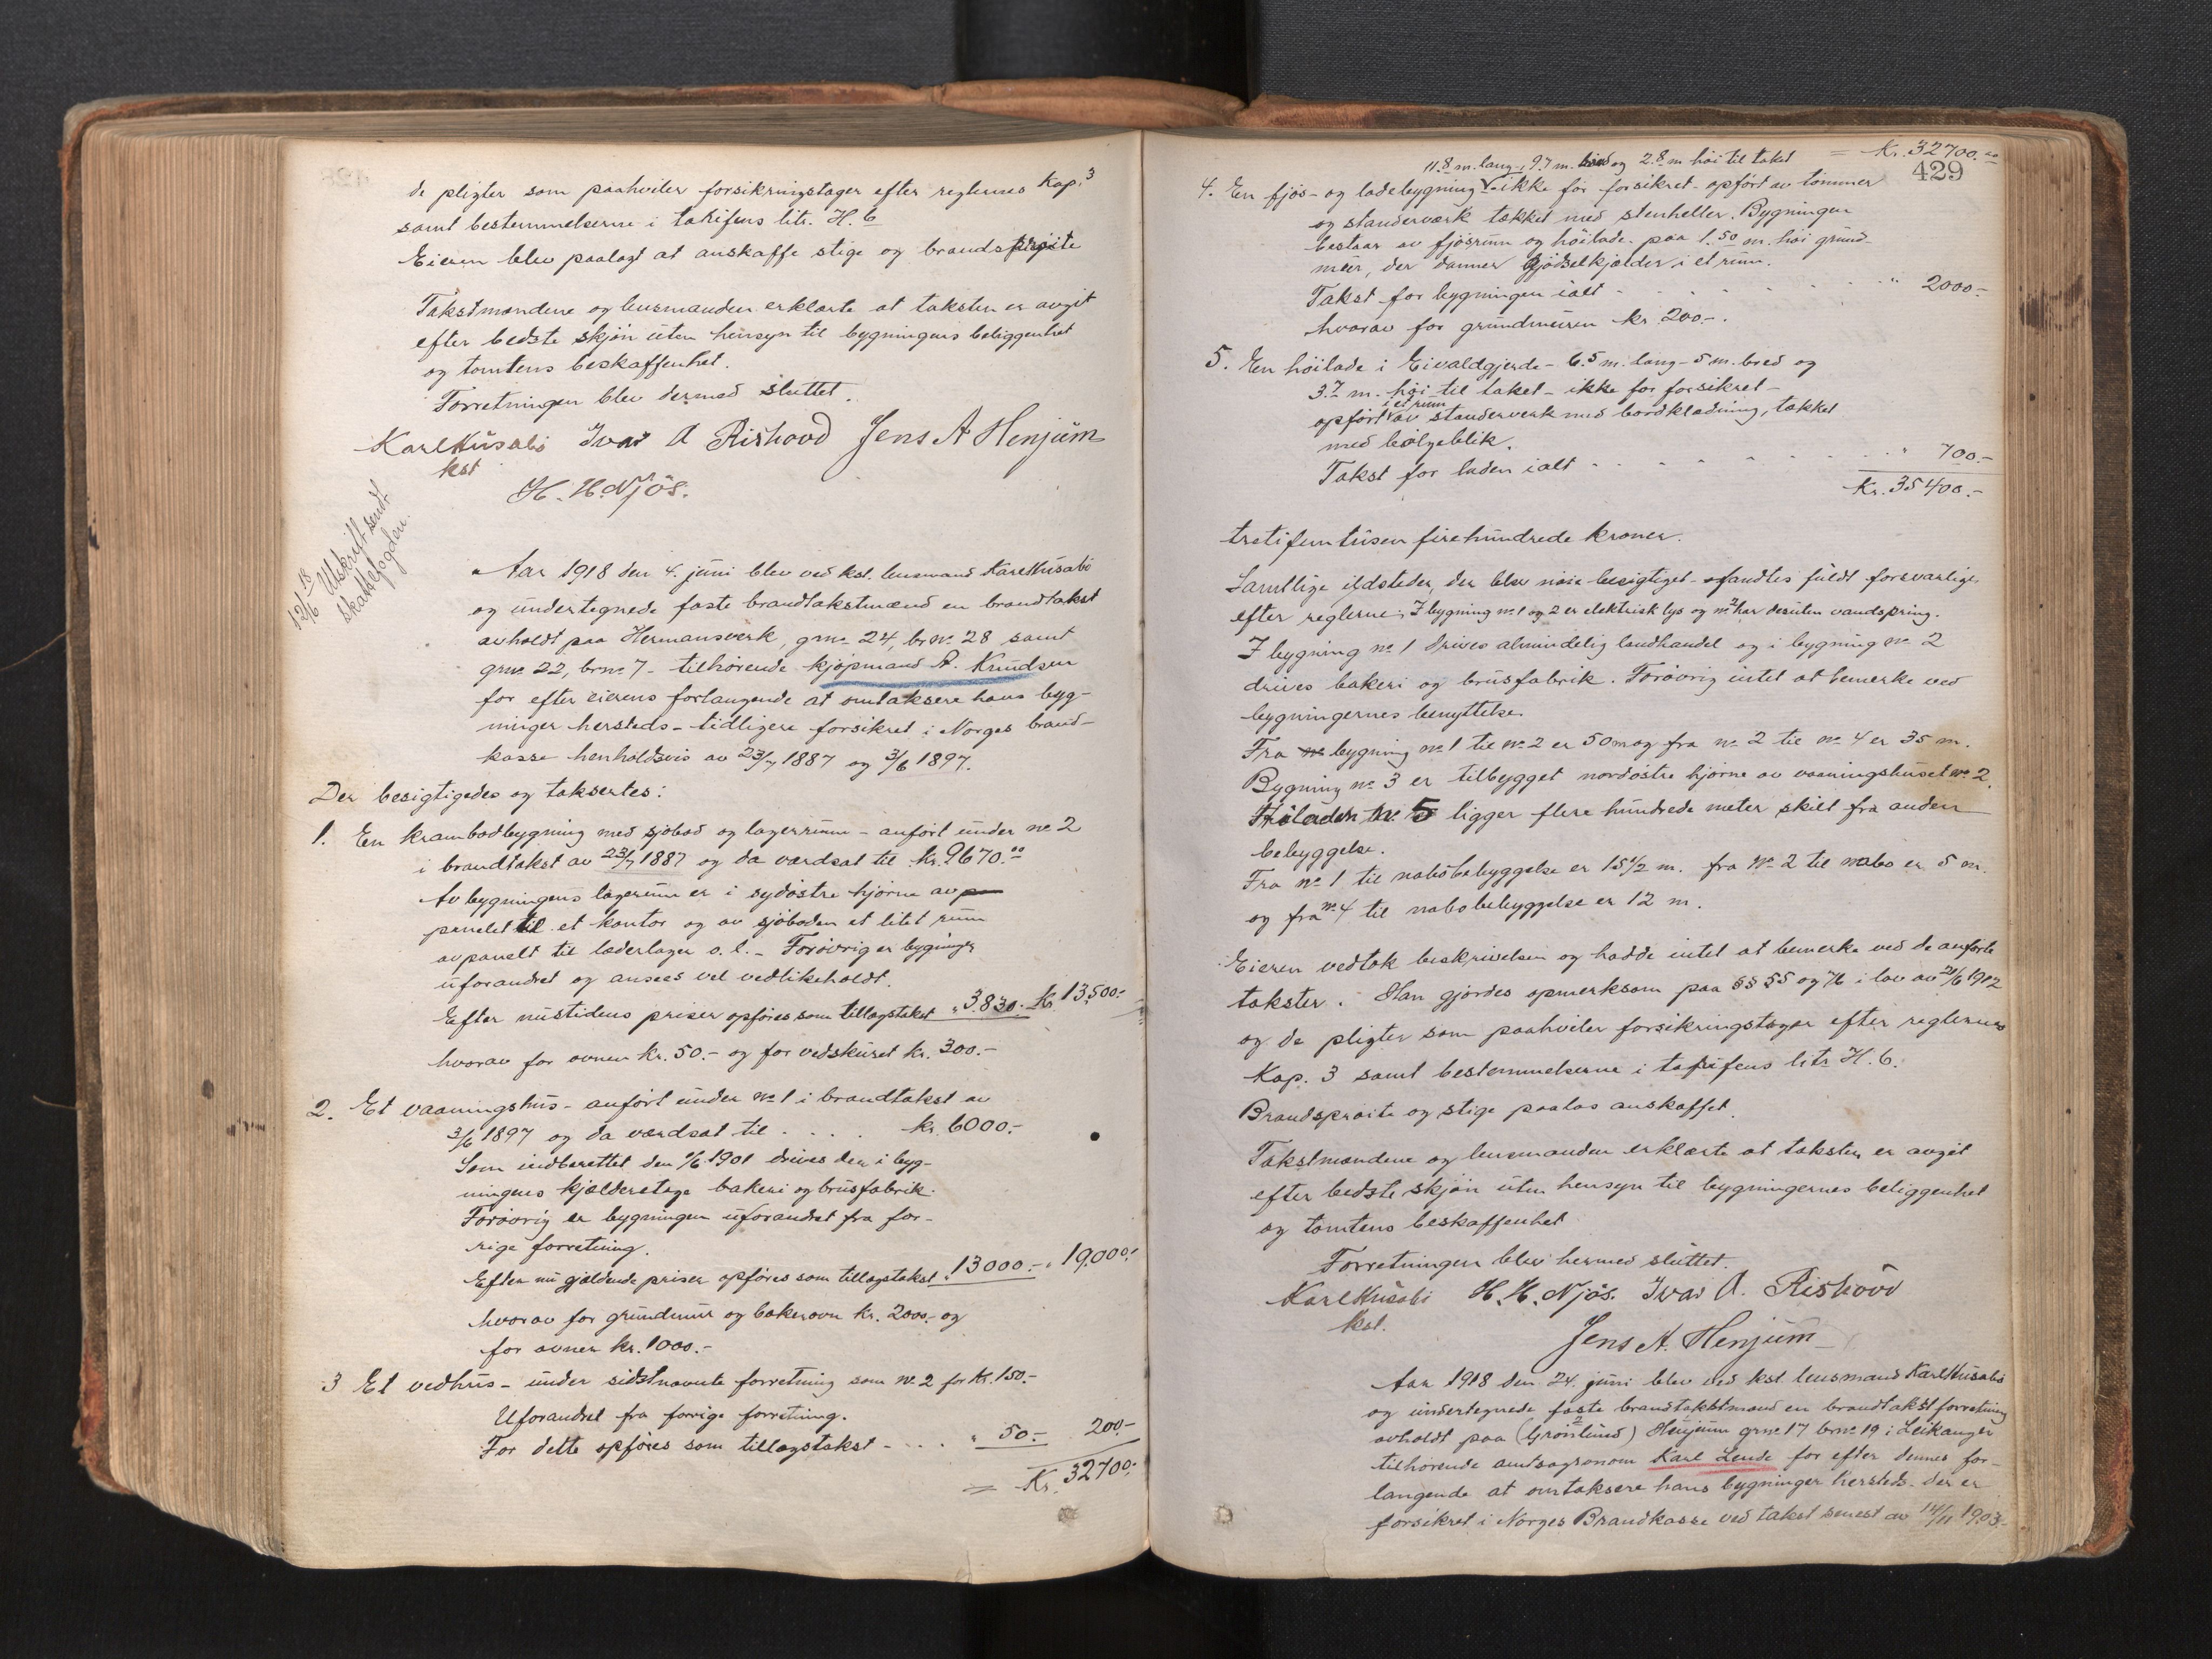 de pligter som paahviler forsikringstager efter reglernes Kap. 3
samt bestemmelserne i tariffens litr. H. 6
Eieren blev paalagt at anskaffe stige og brandsprøite
Takstmændene og lensmanden erklærte at taksten er avgit
efter bedste skjøn uten hensyn til bygningens beliggenhet
og tomtens beskaffenhet.
Forretningen blev dermed sluttet.
Karl Husabø Ivar A Rishovd Jens A Henjum
kst
H. H. Njøs.
12/6 18 Utskrift sendt
skattefogden.
Aar 1918 den 4. juni blev ved kst. lensmand Karl Husabø
og undertegnede faste brandtakstmænd en brandtakst
avholdt paa Hermansverk, grno 24, brno 28 samt
grno 22, brno 7 - tilhørende kjøpmand A. Knudsen
for efter eierens forlangende at omtaksere hans byg-
ninger hersteds - tidligere forsikret i Norges brand-
kasse henholdsvis av 23/7 1887 og 3/6 1897.
Der besigtigedes og taksertes:
1. En krambodbygning med sjøbod og lagerrum - anført under no 2
i brandtakst av 23/7 1887 og da værdsat til kr. 9670.00
Av bygningens lagerrum er i sydøstre hjørne av
panelet til et kontor og av sjøboden et litet rum
avpanelt til læderlager o. l. - Forøvrig er bygningen
uforandret og ansees vel vedlikeholdt.
Efter nutidens priser opføres som tillægstakst " 3.830.- Kr. 13,500.-
hvorav for ovnen kr. 50.- og for vedskuret kr. 300.-
2. Et vaaningshus - anført under no 1 i brandtakst av
3/6 1897 og da værdsat til . . . . kr. 6000.-
Som indberettet den 1/6 1901 drives der i byg-
ningens kjælderetage bakeri og brusfabrik.
Forøvrig er bygningen uforandret fra for-
rige forretning.
Efter nu gjældende priser opføres som tillægstakst " 13000.- " 19,000.-
hvorav for grundmur og bakerovn kr. 2000.- og
for ovner kr. 1000.-
3 Et vedhus - under sidstnævnte forretning som no. 2 for kr. 150.-
Uforandret fra forrige forretning.
For dette opføres som tillægstakst - . . . . " 50.- 200.-
= Kr. 32700.-
= Kr. 32700.00
429
11.8 m. lang - 9.7 m. bred og 2.8 m høi til taket
4. En fjøs- og ladebygning - ikke før forsikret - opført av tømmer
og standerværk tækket med stenheller. Bygningen
bestaar av fjøsrum og høilade. paa 1.50 m. høi grund-
mur, der danner gjødselkjælder i et rum.
Takst for bygningen ialt - - - - - - - " 2000.-
hvorav for grundmuren kr. 200.-.
5. En høilade i Eivaldgjerde - 6.5 m. lang - 5 m. bred og
3.7 m. høi til taket - ikke før forsikret -
i et rum
opført av standerverk med bordklædning, tækket
med bølgeblik.
Takst for laden ialt - - - - - - - - " 700.-
Kr. 35400.-
tretifemtusen firehundrede kroner.
Samtlige ildsteder, der blev nøie besigtiget - fandtes fuldt forsvarlige
efter reglerne. I bygning no 1 og 2 er elektrisk lys og no 2 har desuten vandspring.
I bygning no 1 drives almindelig landhandel og i bygning no 2
drives bakeri og brusfabrik. Forøvrig intet at bemerke ved
bygningernes benyttelse.
Fra bygning no 1 til no 2 er 50 m og fra no 2 til no 4 er 35 m.
Bygning no 3 er tilbygget nordøstre hjørne av vaaningshuset no 2.
Høiladen no. 5 ligger flere hundrede meter skilt fra anden
bebyggelse.
Fra no 1 til nabobebyggelse er 15 1/2 m. fra No 2 til nabo er 5 m.
og fra no. 4 til nabobebyggelse er 12 m.
Eieren vedtok beskrivelsen og hadde intet at bemerke ved de anførte
takster. Han gjordes opmerksom paa §§ 55 og 76 i lov av 21/6 1912
og de pligter som paahviler forsikringstager efter reglernes
Kap. 3 samt bestemmelserne i tariffens litr H. 6.
Brandsprøite og stige paalas anskaffet.
Takstmændene og lensmanden erklærte at taksten er avgit
efter bedste skjøn uten hensyn til bygningernes beliggenhet
og tomtens beskaffenhet
Forretningen blev hermed sluttet.
Karl Husabø H. H. Njøs. Ivar A. Rishovd
kst.
Jens A. Henjum
Aar 1918 den 24. juni blev ved kst lensmand Karl Husabø
og undertegnede faste brandtakstmænd en brandtakstforretning
avholdt paa (Grønlund) Henjum grno 17 brno 19 i Leikanger
tilhørende amtsagronom Karl Lende for efter dennes for-
langende at omtaksere hans bygninger hersteds - der er
forsikret i Norges Brandkasse ved takst senest av 14/11 1903.-